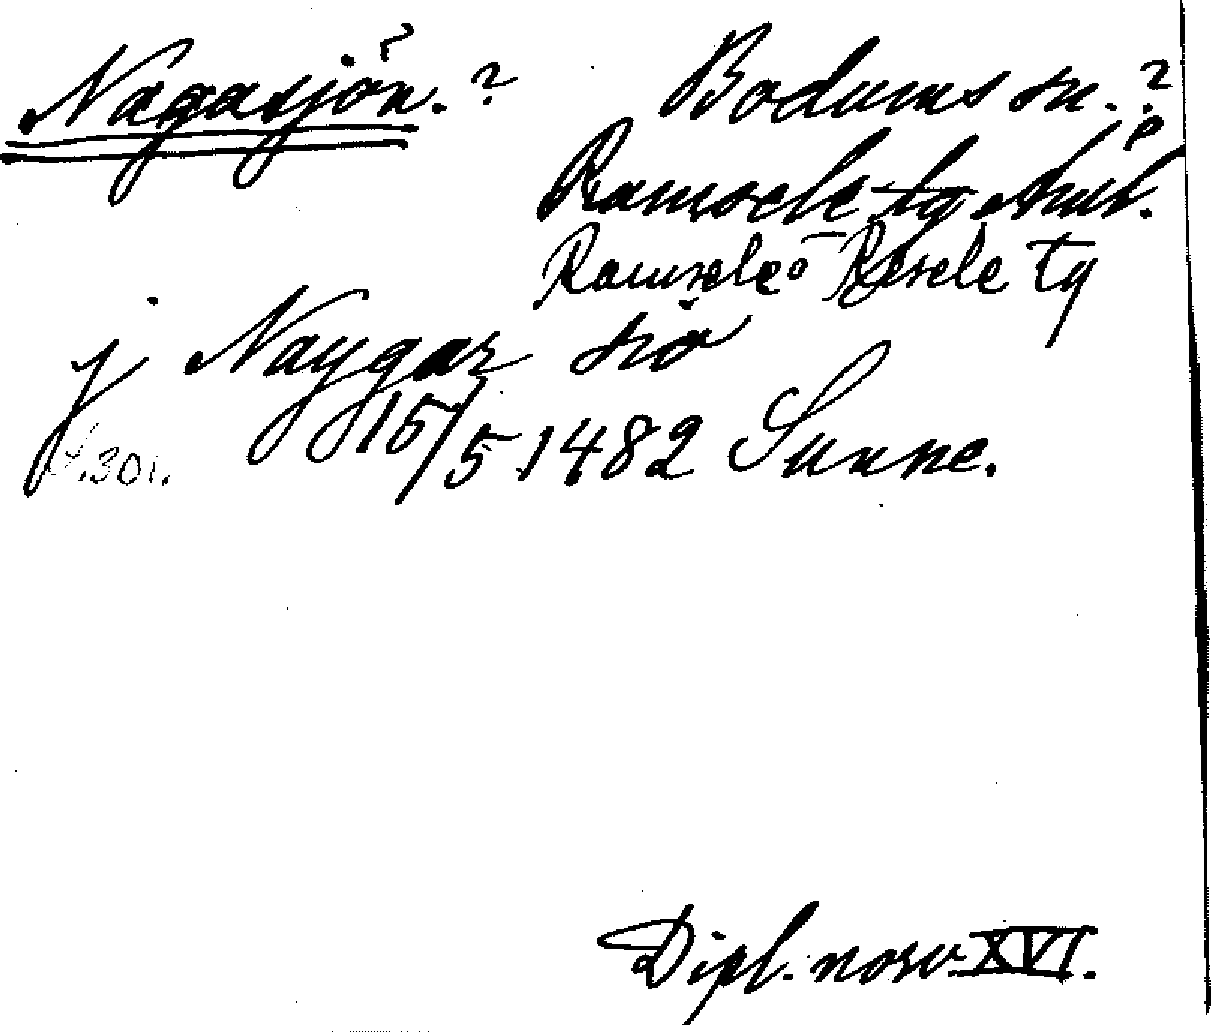 Nagasjön. ? ? Bodums sn. ?
Ramsele tg Ång.
Ramsele o Resele tg
j Naygar siö
s.301. 15/5 1482 Sunne.
Dipl. norv. XVI.